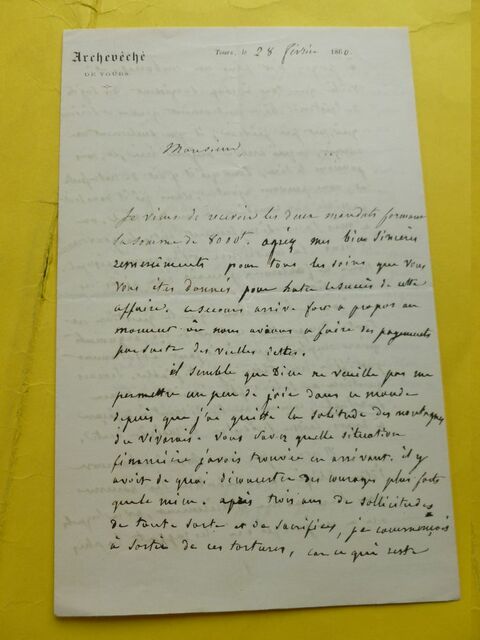 Archevêché
DE TOURS
Tours, le 28 février 1860.
Monsieur,
Je viens de recevoir les deux mandats formant
la somme de 8000f. agréez mes bien sincères
remerciements pour tous les soins que vous
vous êtes donnés pour hater le succès de cette
affaire. ce secours arrive fort a propos au
moment où nous avions a faire des payements
par suite des vieilles dettes.
il semble que Dieu ne veuille pas me
permettre un peu de joie dans ce monde
depuis que j'ai quitté la solitude des montagnes
du vivarais. vous savez quelle situation
financière j'avois trouvée en arrivant. il y
avoit de quoi déconcerter des courages plus forts
que le mien. après trois ans de sollicitudes
de toute sorte et de sacrifices, je commençois
à sortir de ces tortures, car ce qui reste